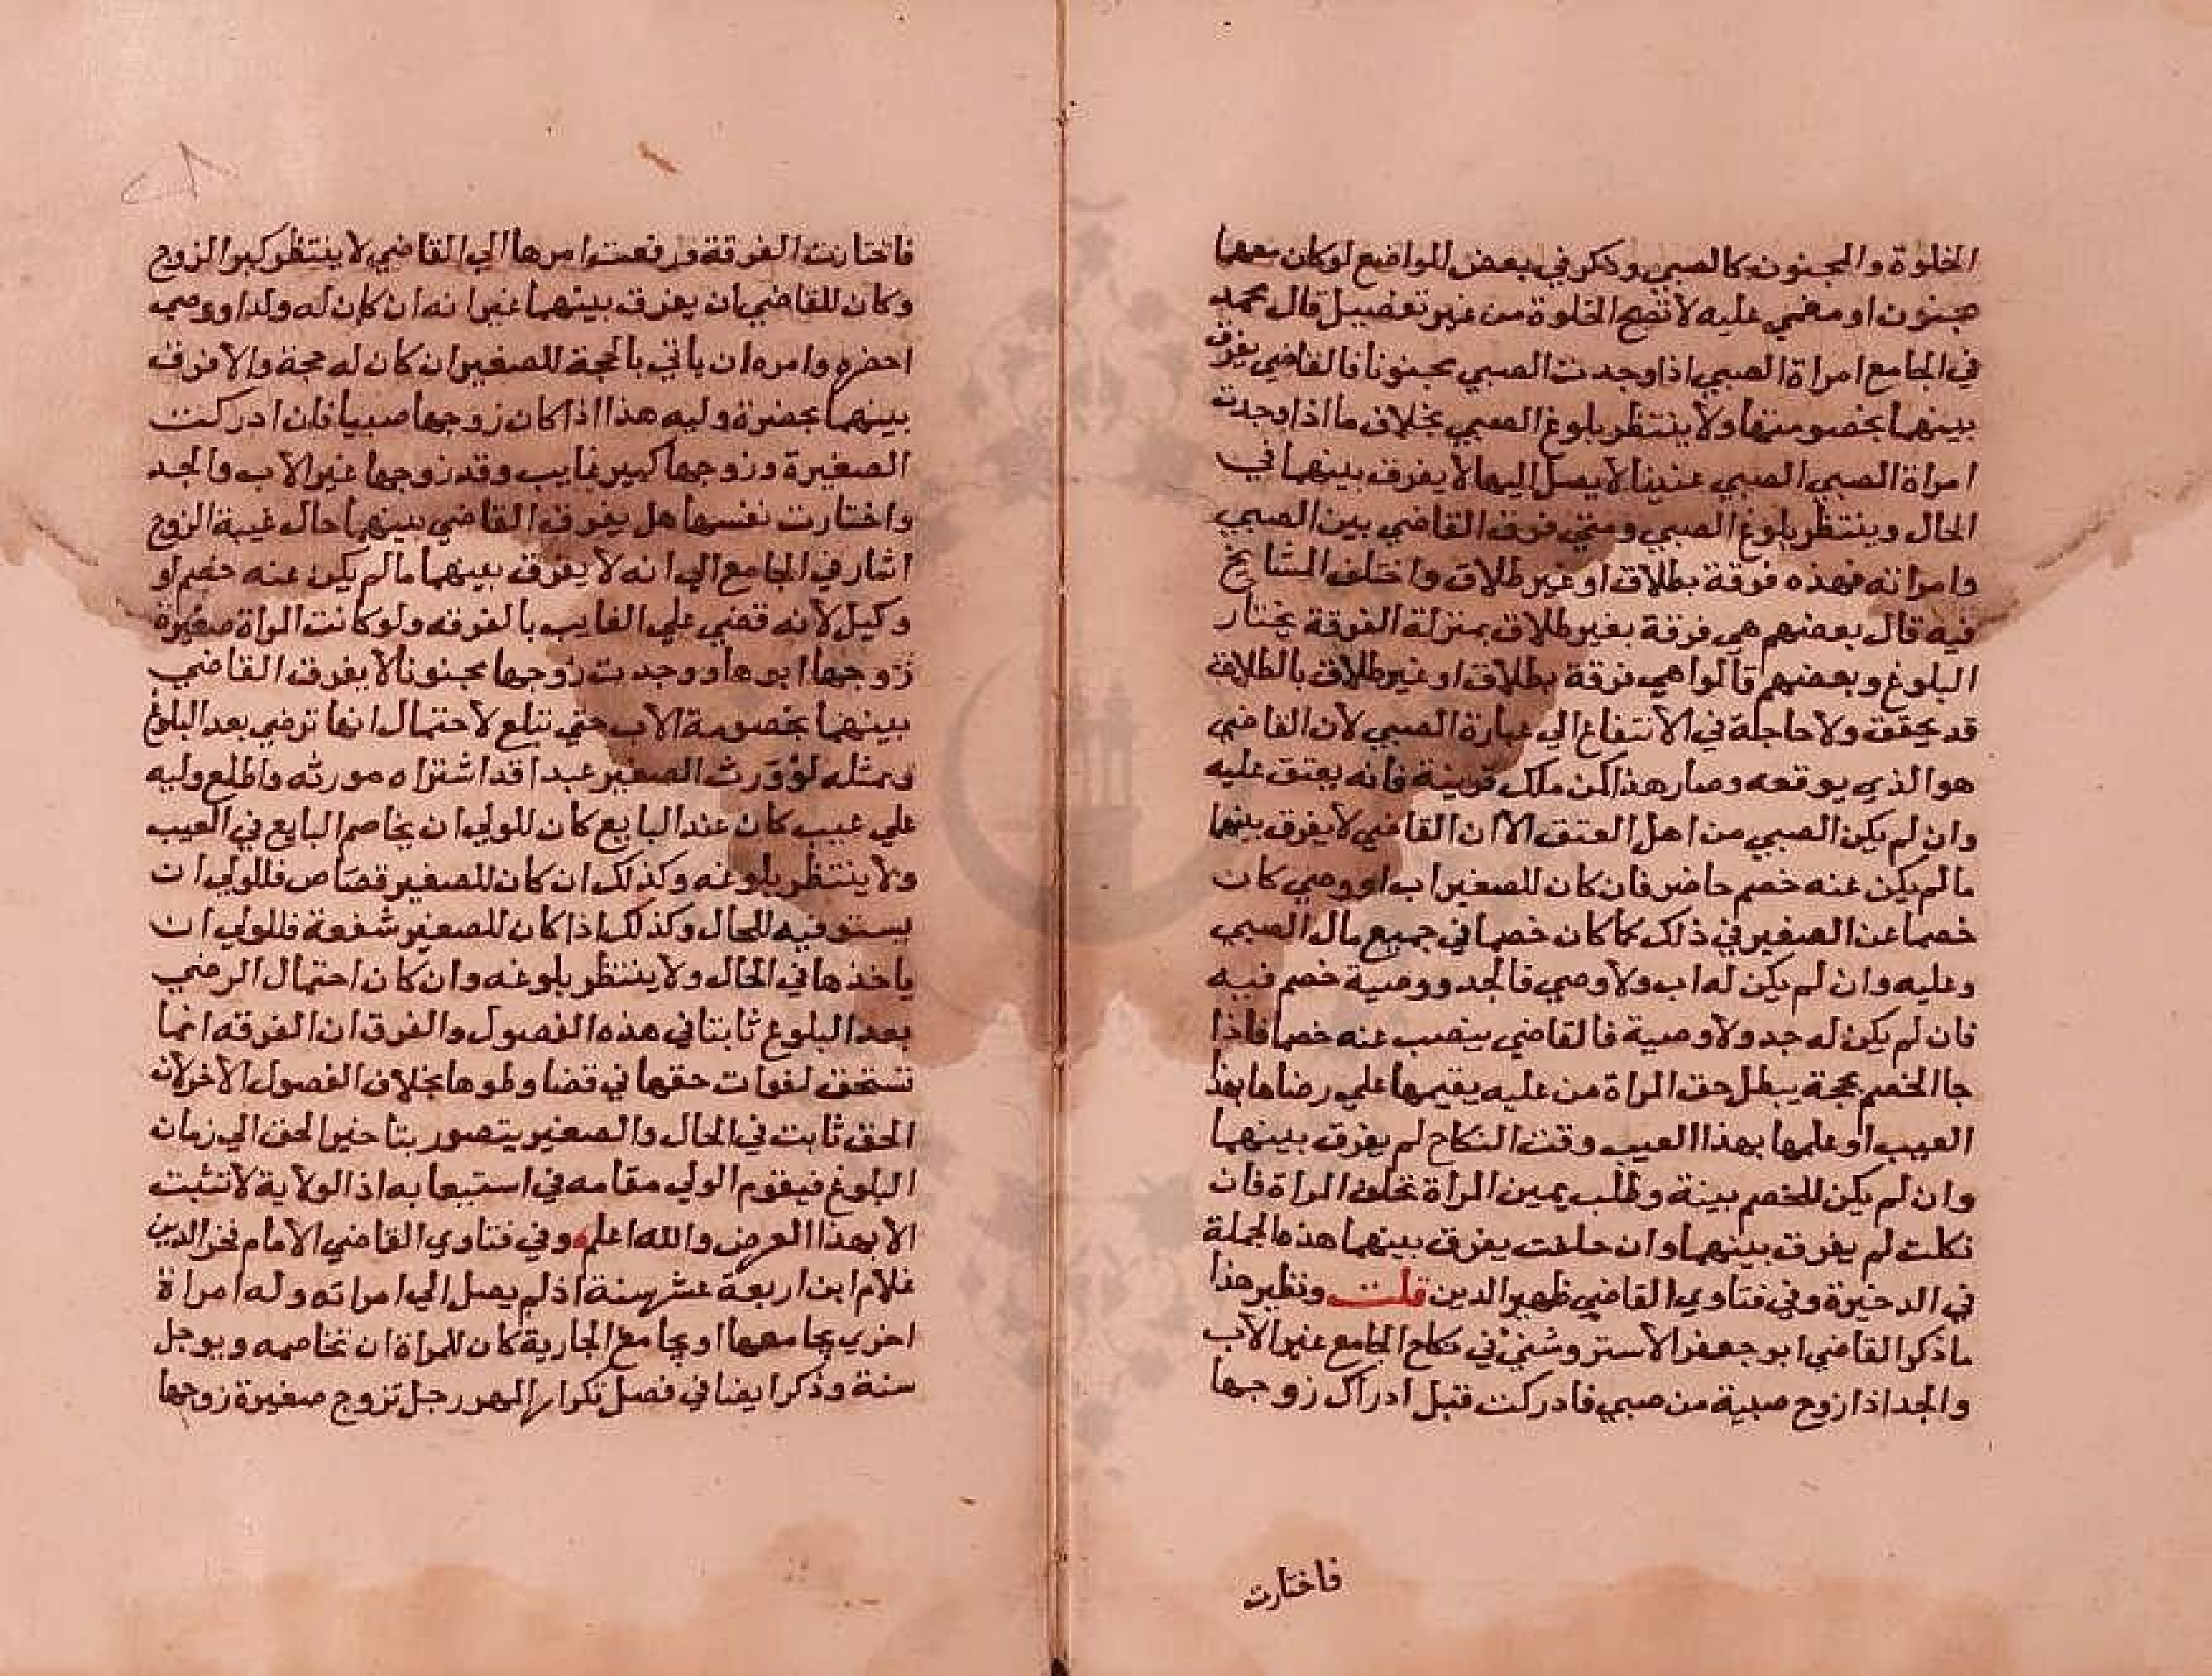 الخلوة والمجنون كالصبي وذكر في بعض المواضع لو كان معهما
مجنون او مغمي عليه لا تصح الخلوة من غير تفصيل قال محمد
في الجامع امراة الصبي اذا وجدت الصبي مجنونا فالقاضي يفرق
بينهما بخصومتها ولا ينتظر بلوغ الصبي بخلاف ما اذا وجدت
امراة الصبي الصبي عنينا لا يصل اليها لا يفرق بينهما في
الحال وينتظر بلوغ الصبي ومتي فرق القاضي بين الصبي
وامراته فهذه فرقة بطلاق او غير طلاق واختلف المشايخ
فيه قال بعضهم هي فرقة بغير طلاق بمنزلة الفرقة بختار
البلوغ وبعضهم قالوا هي فرقة بطلاق او غير طلاق بالطلاقة
قد يحقق ولا حاجلة في الانتفاع الي عبارة الصبي لان القاضي
هو الذي يوقعه وصار هذا كمن ملك قريبة فانه يعتق عليه
وان لم يكن الصبي من اهل العتق الا ان القاضي لا يفرق بينهما
ما لم يكن عنه خصم حاضر فان كان للصغير اب او وصي كان
خصما عن الصغير في ذلك كما كان خصما في جميع مال الصبي
وعليه وان لم يكن له اب ولا وصي فالجد ووصية خصم فيه
فان لم يكن له جد ولا وصية فالقاضي ينصب عنه خصما فاذا
جا الخصم بحجة يبطل حق المراة من عليه يقيمها علي رضاها بهذا
العيب او علمها بهذا العيب وقت النكاح لم يفرق بينهما
وان لم يكن للخصم بينة وطلب يمين المراة تحلف المراة فان
نكلت لم يفرق بينهما وان حلفت يفرق بينهما هذه الجملة
في الدخيرة وفي فتاوي القاضي ظهير الدين قلت ونظير هذا
ما ذكر القاضي ابو جعفر الاستروشني في نكاح الجامع غير الاب
والجد اذا زوج صبية من صبي فادركت قبل ادراك زوجها
فاختارت
فاختارت الفرقة ورفعت امرها الي القاضي لا ينتظر كبر الزوج
وكان للقاضي ان يفرق بينهما غير انه ان كان له ولدا ووصي
احضره وامره ان ياتي بالحجة للصغير ان كان له حجة والا فرق
بينهما بحضرة وليه هذا اذا كان زوجها صبيا فان ادركت
الصغيرة وزوجها كبير غايب وقد زوجها غير الاب والجد
واختارت نفسها هل يفرق القاضي بينهما حال غيبة الزوج
اشار في الجامع الي انه لا يفرق بينهما ما لم يكن عنه خصم او
وكيل لانه قضي علي الغايب بالفرقه ولو كانت المراة صغيرة
زوجها ابوها ووجدت زوجها مجنونا لا يفرق القاضي
بينهما بخصومة الاب حتي تبلع لاحتمال انها ترضي بعد البلوغ
وبمثله لو ورث الصغير عبدا قد اشتراه مورثه واطلع وليه
علي عيب كان عند البايع كان للولي ان يخاصم البايع في العيب
ولا ينتظر بلوغه وكذلك ان كان للصغير قصاص فللولي ان
يستوفيه للحال وكذلك اذا كان للصغير شفعة فللولي ان
ياخذها في الحال ولا ينتظر بلوغه وان كان احتمال الرضي
بعد البلوغ ثابتا في هذه الفصول والفرق ان الفرقه انما
تستحق لفوات حقها في قضا وطوها بخلاف الفصول الاخر لان
الحق ثابت في الحال والصغير يتصور بتاخير الحق الي زمان
البلوغ فيقوم الولي مقامه في استيعابه اذ الولاية لا تثبت
الا بهذا العرض والله اعلم وفي فتاوي القاضي الامام فخر الدين
غلام ابن اربعة عشر سنة اذ لم يصل الي امراته وله امراة
اخري يجامعها او يجامع الجارية كان للمراة ان تخاصمه ويوجل
سنة وذكر ايضا في فصل تكرار المهر رجل تزوج صغيرة زوجها